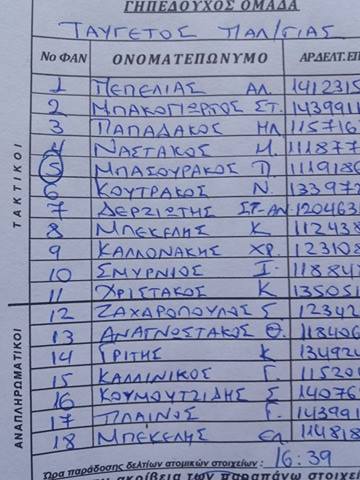 ΓΗΠΕΔΟΥΧΟΣ ΟΜΑΔΑ
ΤΑΥΓΕΤΟΣ ΠΑΛ/ΓΙΑΣ
Νο ΦΑΝ ΟΝΟΜΑΤΕΠΩΝΥΜΟ ΑΡ.ΔΕΛΤ.ΕΠ
ΤΑΚΤΙΚΟΙ
1 ΠΕΠΕΛΙΑΣ ΑΛ. 1412315
2 ΜΠΑΚΟΓΙΩΡΓΟΣ ΣΤ. 1439911
3 ΠΑΠΑΔΑΚΟΣ ΗΛ. 115716
4 ΝΑΣΤΑΚΟΣ Μ. 111877
5 ΜΠΑΣΟΥΡΑΚΟΣ Π. 1119180
6 ΚΟΥΤΡΑΚΟΣ Ν. 133977
7 ΔΕΡΖΙΩΤΗΣ ΣΤ-ΑΝ. 120463
8 ΜΠΕΚΕΛΗΣ Κ 112438
9 ΚΑΛΛΟΝΑΚΗΣ ΧΡ. 123108
10 ΣΜΥΡΝΙΟΣ Ι. 118847
11 ΧΡΙΣΤΑΚΟΣ Κ 135051
ΑΝΑΠΛΗΡΩΜΑΤΙΚΟΙ
12 ΖΑΧΑΡΟΠΟΥΛΟΣ Γ. 12342
13 ΑΝΑΓΝΩΣΤΑΚΟΣ Θ. 118406
14 ΓΡΙΤΗΣ Κ 134921
15 ΚΑΛΛΙΝΙΚΟΣ Γ. 115201
16 ΚΟΥΜΟΥΤΖΙΔΗΣ Σ 14076
17 ΠΛΑΙΝΟΣ Γ. 143991
18 ΜΠΕΚΕΛΗΣ ΕΛ. 114818
Ώρα παράδοσης δελτίων ατομικών στοιχείων : 16:39
ακρίβεια των παραπάνω στοιχε